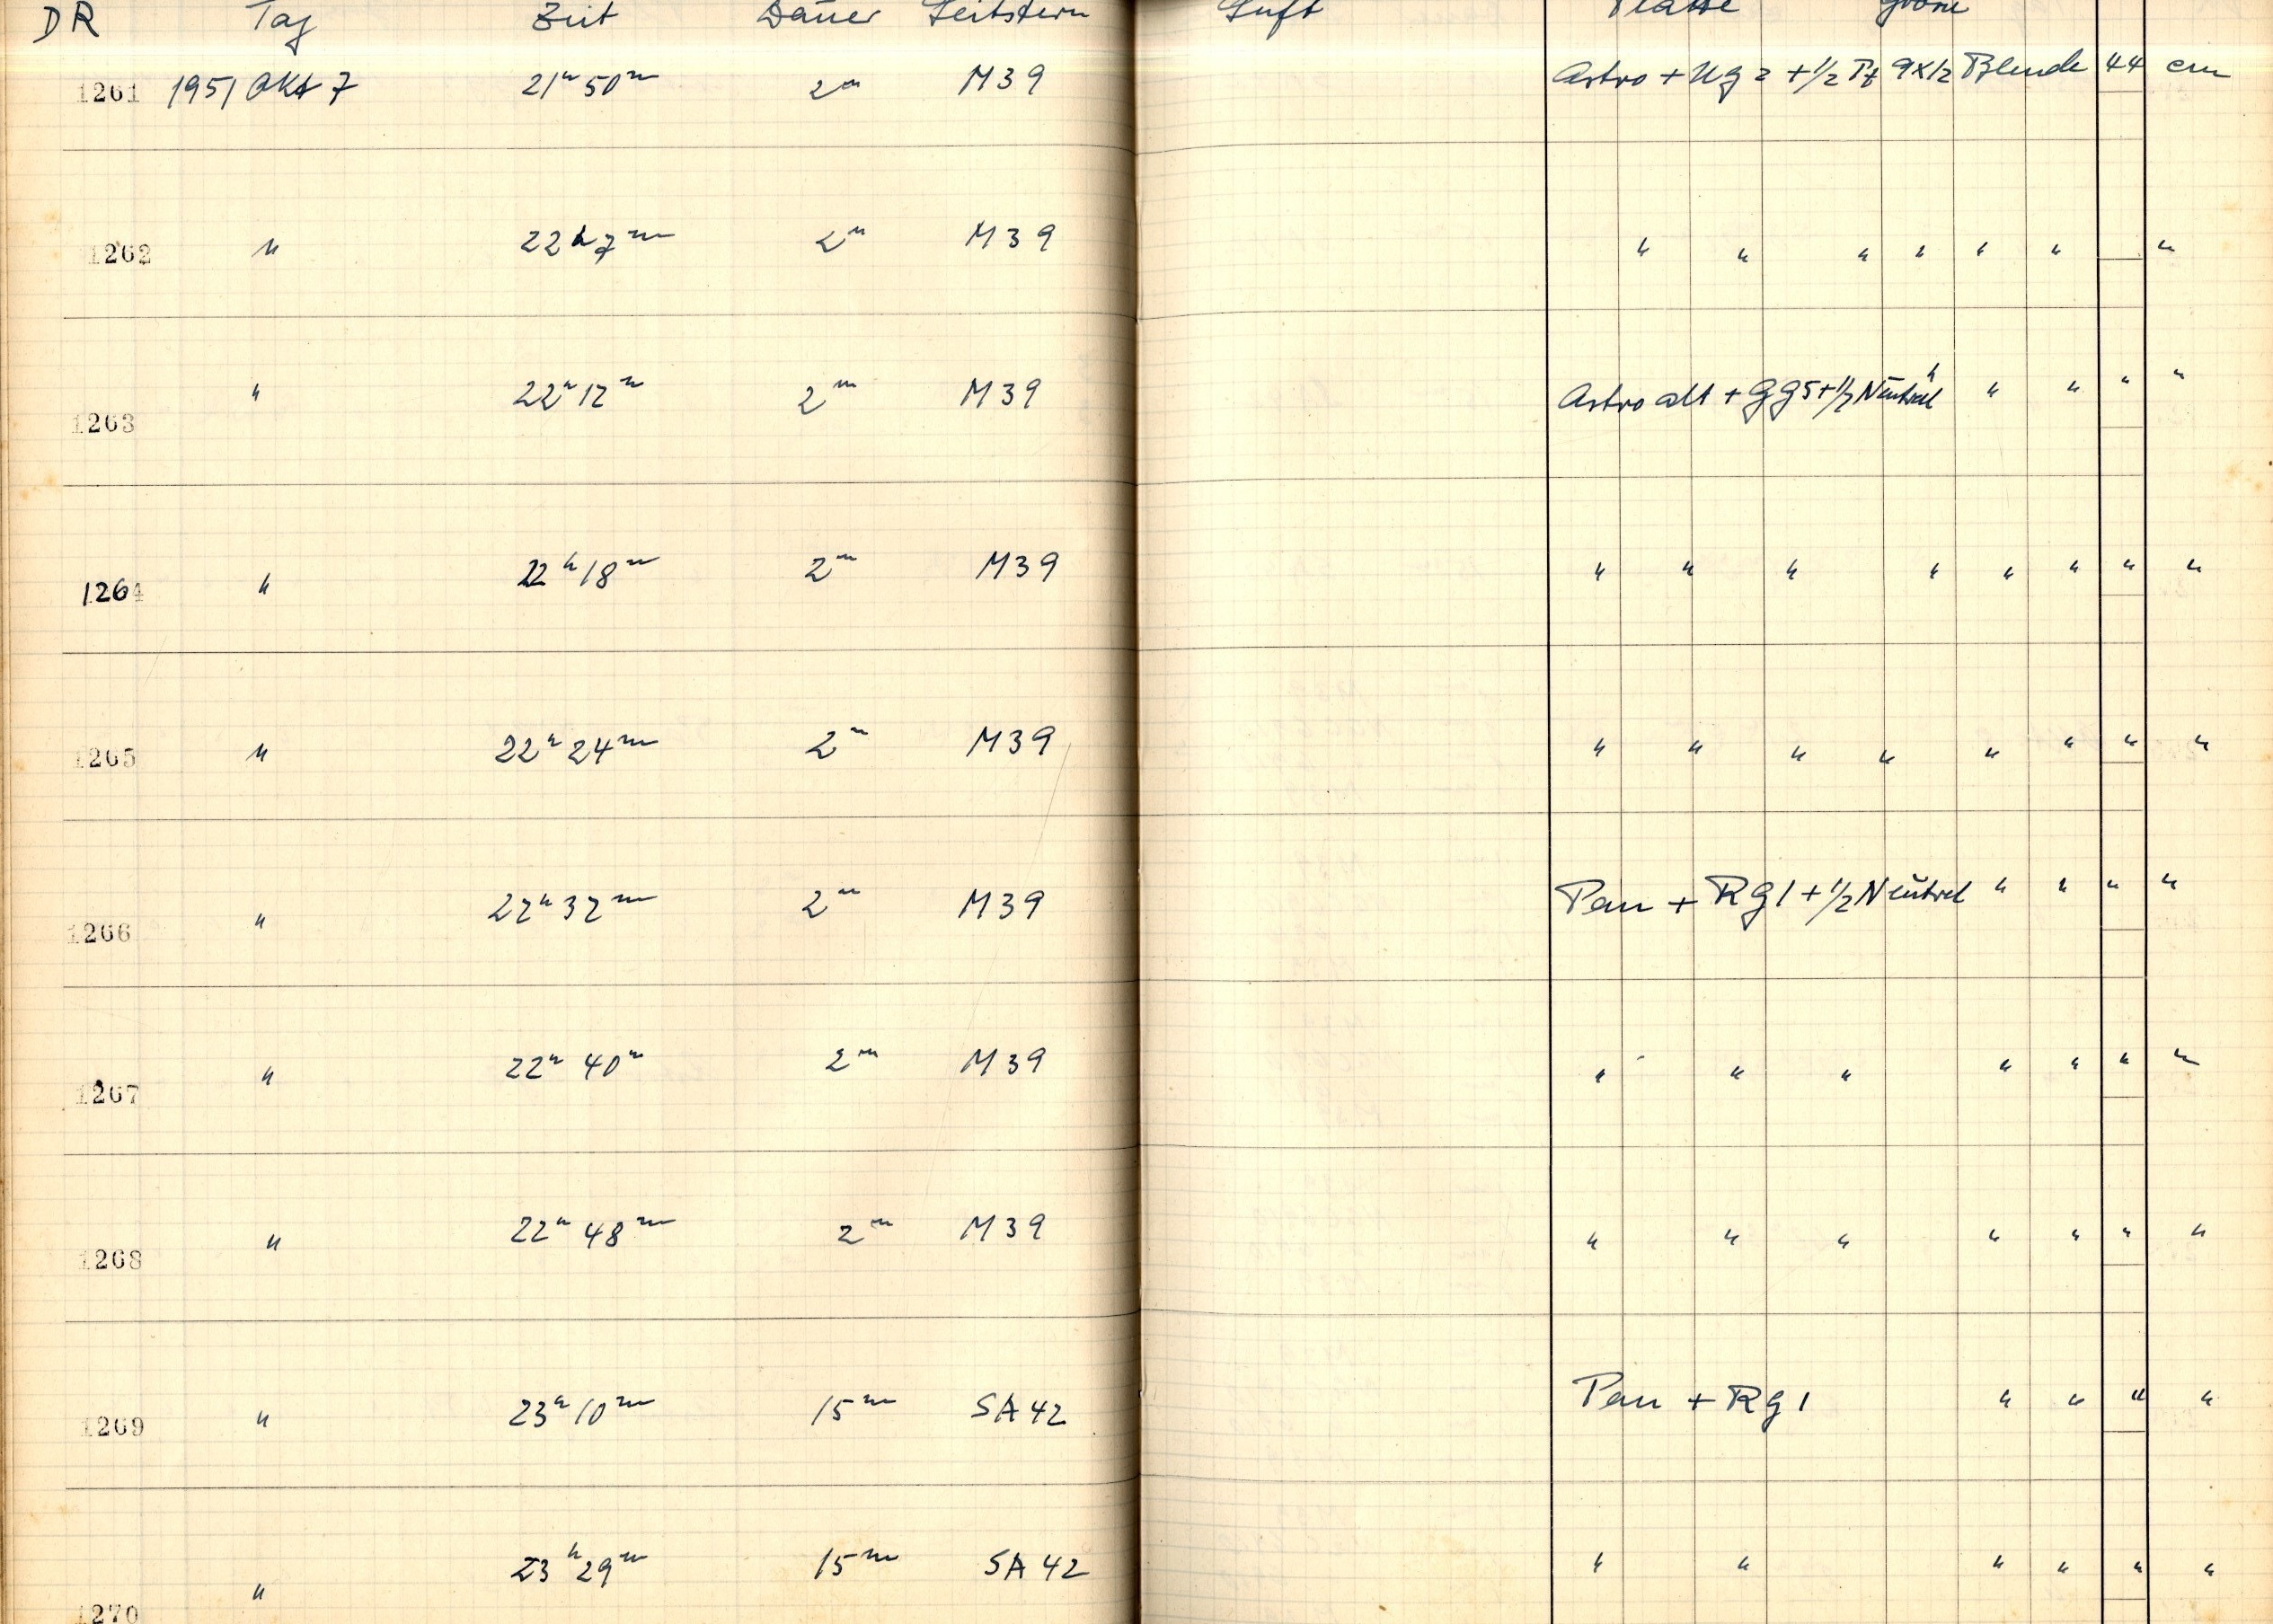 DR Tag Zeit Dauer Leitstern Luft Platte Größe
1261 1951 Okt 7 21ʰ 50ᵐ 2ᵐ M39 Astro + Ug 2 + 1/2 Pt 9x12 Blende 44 cm
1262 " 22ʰ 7ᵐ 2ᵐ M39 " " " " " " "
1263 " 22ʰ 12ᵐ 2ᵐ M39 Astro alt + Gg5 + 1/2 Neutral " " " " "
1264 " 22ʰ 18ᵐ 2ᵐ M39 " " " " " " " "
1265 " 22ʰ 24ᵐ 2ᵐ M39 " " " " " " " "
1266 " 22ʰ 32ᵐ 2ᵐ M39 Pan + Rg 1 + 1/2 Neutral " " " "
1267 " 22ʰ 40ᵐ 2ᵐ M39 " " " " " " "
1268 " 22ʰ 48ᵐ 2ᵐ M39 " " " " " " "
1269 " 23ʰ 10ᵐ 15ᵐ SA 42 Pan + Rg 1 " " " "
1270 " 23ʰ 29ᵐ 15ᵐ SA 42 " " " " " "